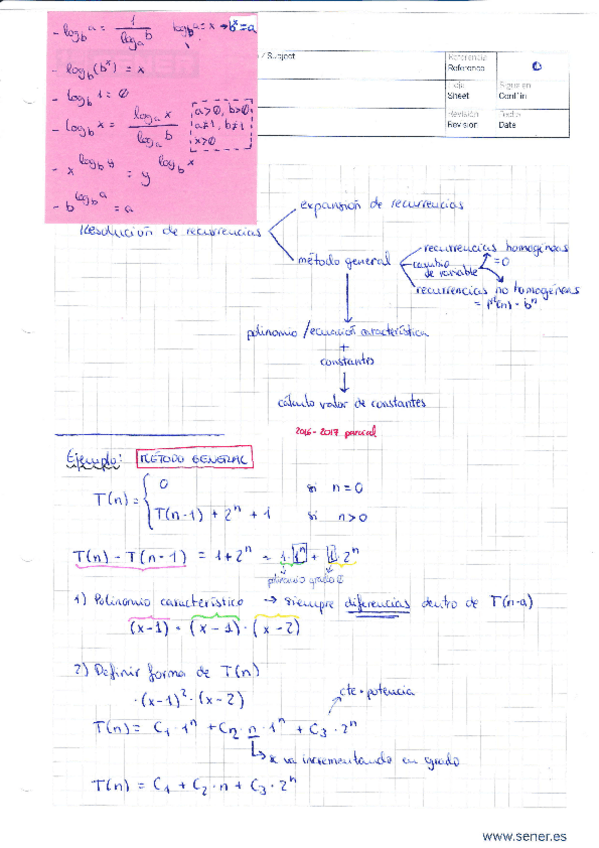 - log_b a = 1 / log_a b   log_b a = x → b^x = a
- log_b (b^x) = x
- log_b 1 = 0
- log_b x = log_a x / log_a b   a>0, b>0 a≠1, b≠1 x>0
- x^(log_b y) = y^(log_b x)
- b^(log_b a) = a
/ Subject
Referencia
Reference
0
Sheet
Cont. in
Revisión
Revision
Fecha
Date
Resolución de recurrencias
expansión de recurrencias
método general
cambio de variable
recurrencias homogéneas
= 0
recurrencias no homogéneas
= p^d(n) · b^n
polinomio / ecuación característica
+
constantes
cálculo valor de constantes
2016 - 2017 parcial
Ejemplo: MÉTODO GENERAL
T(n) = { 0   si n = 0
T(n-1) + 2^n + 1   si n > 0
T(n) - T(n-1) = 1 + 2^n = 1 · 1^n + 1 · 2^n
polinomio grado 0
1) Polinomio característico → siempre diferencias dentro de T(n-a)
(x-1) · (x-1) · (x-2)
2) Definir forma de T(n)
· (x-1)² · (x-2)
cte · potencia
T(n) = C₁ · 1^n + C₂ · n · 1^n + C₃ · 2^n
se va incrementando en grado
T(n) = C₁ + C₂ · n + C₃ · 2^n
www.sener.es